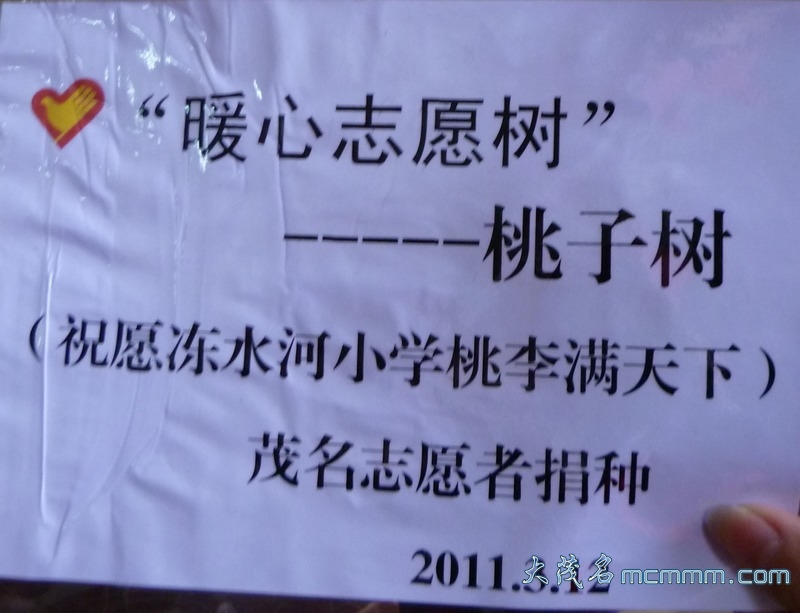 “暖心志愿树”
-----桃子树
（祝愿冻水河小学桃李满天下）
茂名志愿者捐种
2011.3.12
大茂名 mcmmm.com